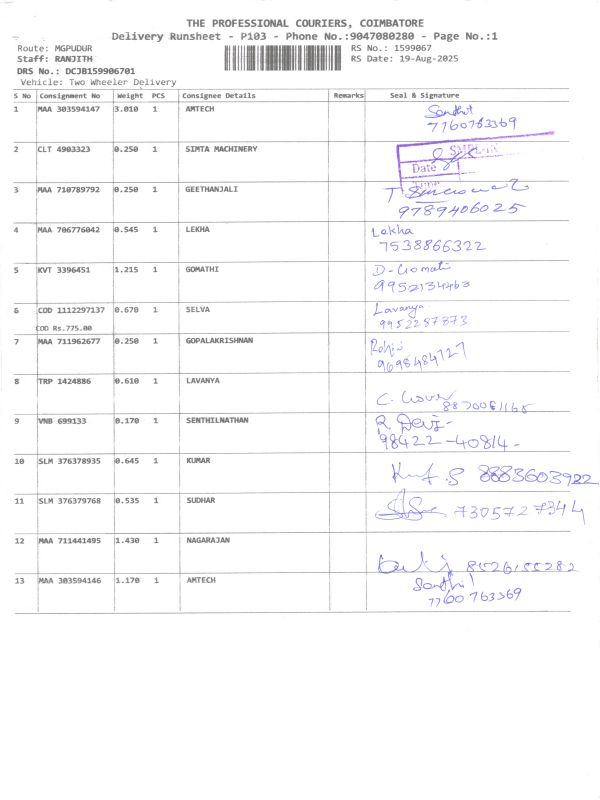 THE PROFESSIONAL COURIERS, COIMBATORE
Delivery Runsheet - P103 - Phone No.:9047080280 - Page No.:1
Route: MGPUDUR RS No.: 1599067
Staff: RANJITH RS Date: 19-Aug-2025
DRS No.: DCJB159906701
Vehicle: Two Wheeler Delivery
S No Consignment No Weight PCS Consignee Details Remarks Seal & Signature
1 MAA 303594147 3.010 1 AMTECH Senthil
7760763369
2 CLT 4903323 0.250 1 SIMTA MACHINERY
Date
3 MAA 710789792 0.250 1 GEETHANJALI
9789406025
4 MAA 706776042 0.545 1 LEKHA Lekha
7538866322
5 KVT 3396451 1.215 1 GOMATHI D-Gomati
9952134463
6 COD 1112297137 0.670 1 SELVA Lavanya
9952287873
COD Rs.775.00
7 MAA 711962677 0.250 1 GOPALAKRISHNAN Rohini
9698484727
8 TRP 1424886 0.610 1 LAVANYA
8870081165
9 VNB 699133 0.170 1 SENTHILNATHAN R. Devi-
98422-40814-
10 SLM 376378935 0.645 1 KUMAR 8883603922
11 SLM 376379768 0.535 1 SUDHAR 7305727344
12 MAA 711441495 1.430 1 NAGARAJAN
8526155282
13 MAA 303594146 1.170 1 AMTECH Senthil
7760763369